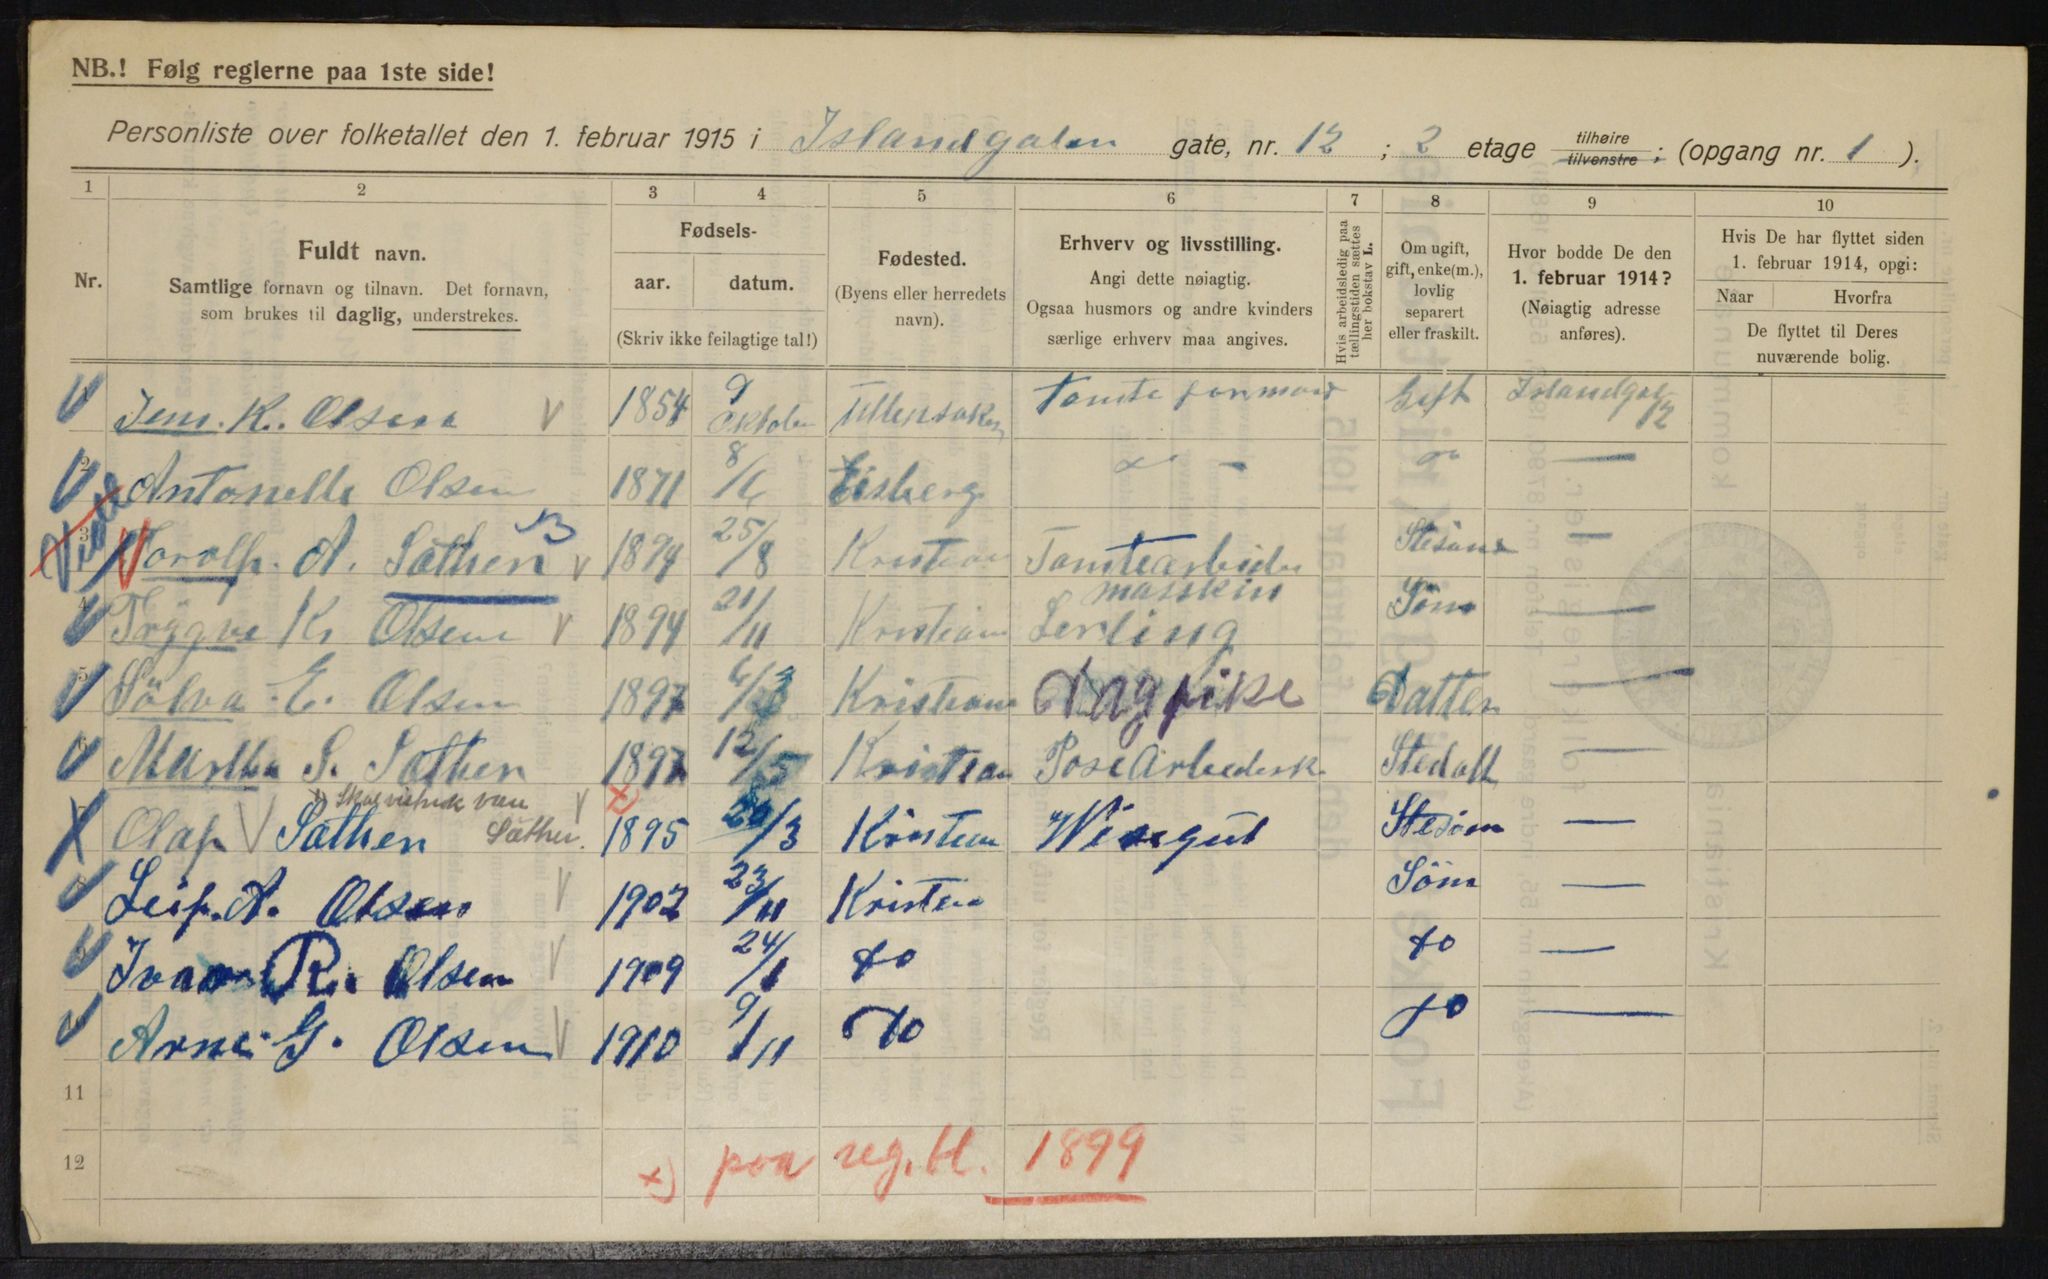 NB.! Følg reglerne paa 1ste side!
Personliste over folketallet den 1. februar 1915 i Islandgaten gate, nr. 12 ; 2 etage tilhøire tilvenstre ; (opgang nr. 1 ).
1 2 3 4 5 6 7 8 9 10
Nr.
Fuldt navn.
Samtlige fornavn og tilnavn. Det fornavn,
som brukes til daglig, understrekes.
Fødsels-
aar. datum.
(Skriv ikke feilagtige tal!)
Fødested.
(Byens eller herredets
navn).
Erhverv og livsstilling.
Angi dette nøiagtig.
Ogsaa husmors og andre kvinders
særlige erhverv maa angives.
Hvis arbeidsledig paa
tællingstiden sættes
her bokstav L.
Om ugift,
gift, enke(m.),
lovlig
separert
eller fraskilt.
Hvor bodde De den
1. februar 1914?
(Nøiagtig adresse
anføres).
Hvis De har flyttet siden
1. februar 1914, opgi:
Naar Hvorfra
De flyttet til Deres
nuværende bolig.
Jens. K. Olsen V 1854 9 Oktober Ullensaker Tomte formand Gift Islandgat 12
2 Antonette Olsen 1871 8/6 Eisberg " - " —
3 Torolf. A. Säthen V 1894 25/8 Kristian Tomtearbeider Stesøn —
4 Tryggve Kr Olsen V 1894 21/11 Kristian masskin Lerling Søn —
5 Sölva E. Olsen 1897 6/3 Kristian Dagpike Datter —
6 Martha S. Sathen 1897 12/5 Kristian Posearbeidersk Stedatt —
x) Skal visstnok være Säther.
7 Olaf V Sathen 1895 x) 20/3 Kristian Visegut Stesøn —
8 Leif. A. Olsen V 1902 23/11 Kristian Søn —
9 Ivar R. Olsen V 1909 24/1 do do —
Arne G. Olsen V 1910 9/11 do do —
11
12
x) paa reg. bl. 1899